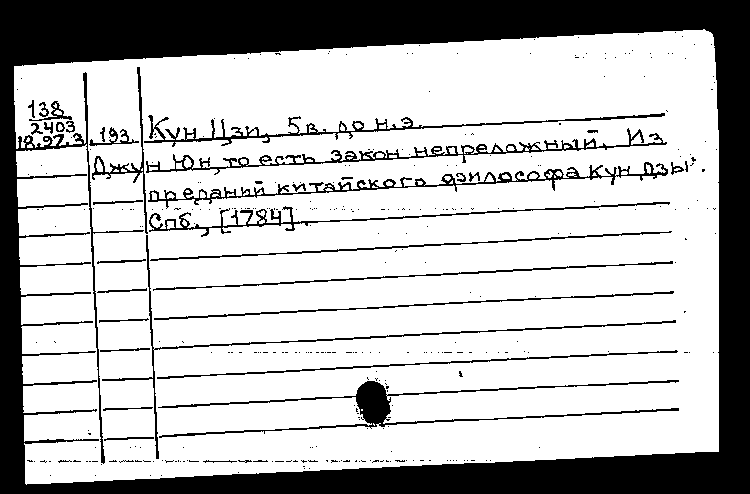 138
2403
18.97.3 .193. Кун Цзи, 5в. до н.э.
Джун Юн, то есть закон непреложный. Из
преданий китайского философа Кун Дзы.
Спб., [1784].